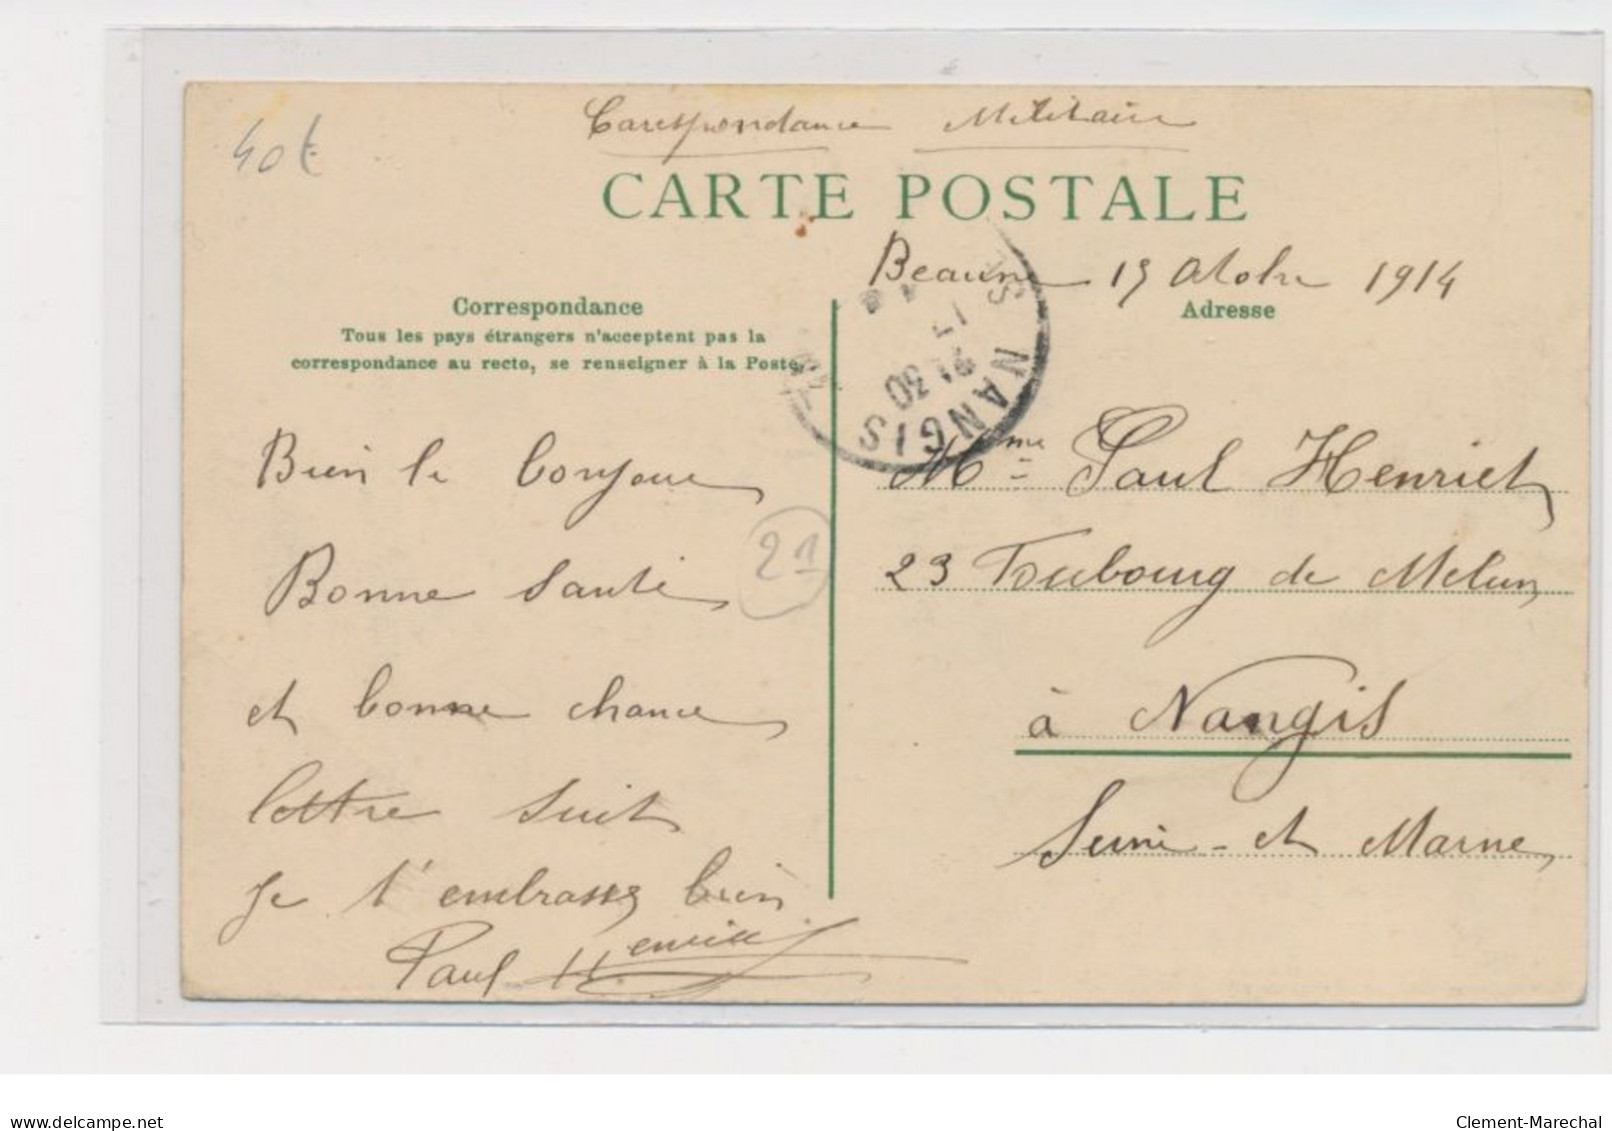 40€
Carespondance Militaire
CARTE POSTALE
Beaune 15 Octobre 1914
Correspondance
Tous les pays étrangers n'acceptent pas la
correspondance au recto, se renseigner à la Poste.
Adresse
NANGIS
17
21 30
Bien le bonjour
Bonne santé
et bonne chance
lettre suit
Je t'embrasse bien
Paul Henriet
21
Mme Paul Henriet
23 Foubourg de Melun
à Nangis
Seine-et Marne
www.delcampe.net
Clement-Marechal